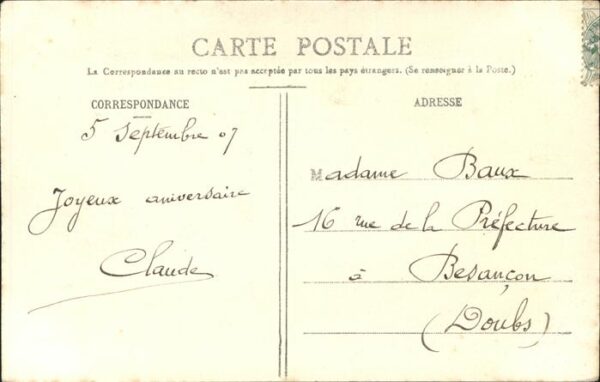 CARTE POSTALE
La Correspondance au recto n'est pas acceptée par tous les pays étrangers. (Se renseigner à la Poste.)
CORRESPONDANCE
5 Septembre 07
Joyeux aniversaire
Claude
ADRESSE
Madame Baux
16 rue de la Préfecture
à Besançon
(Doubs)